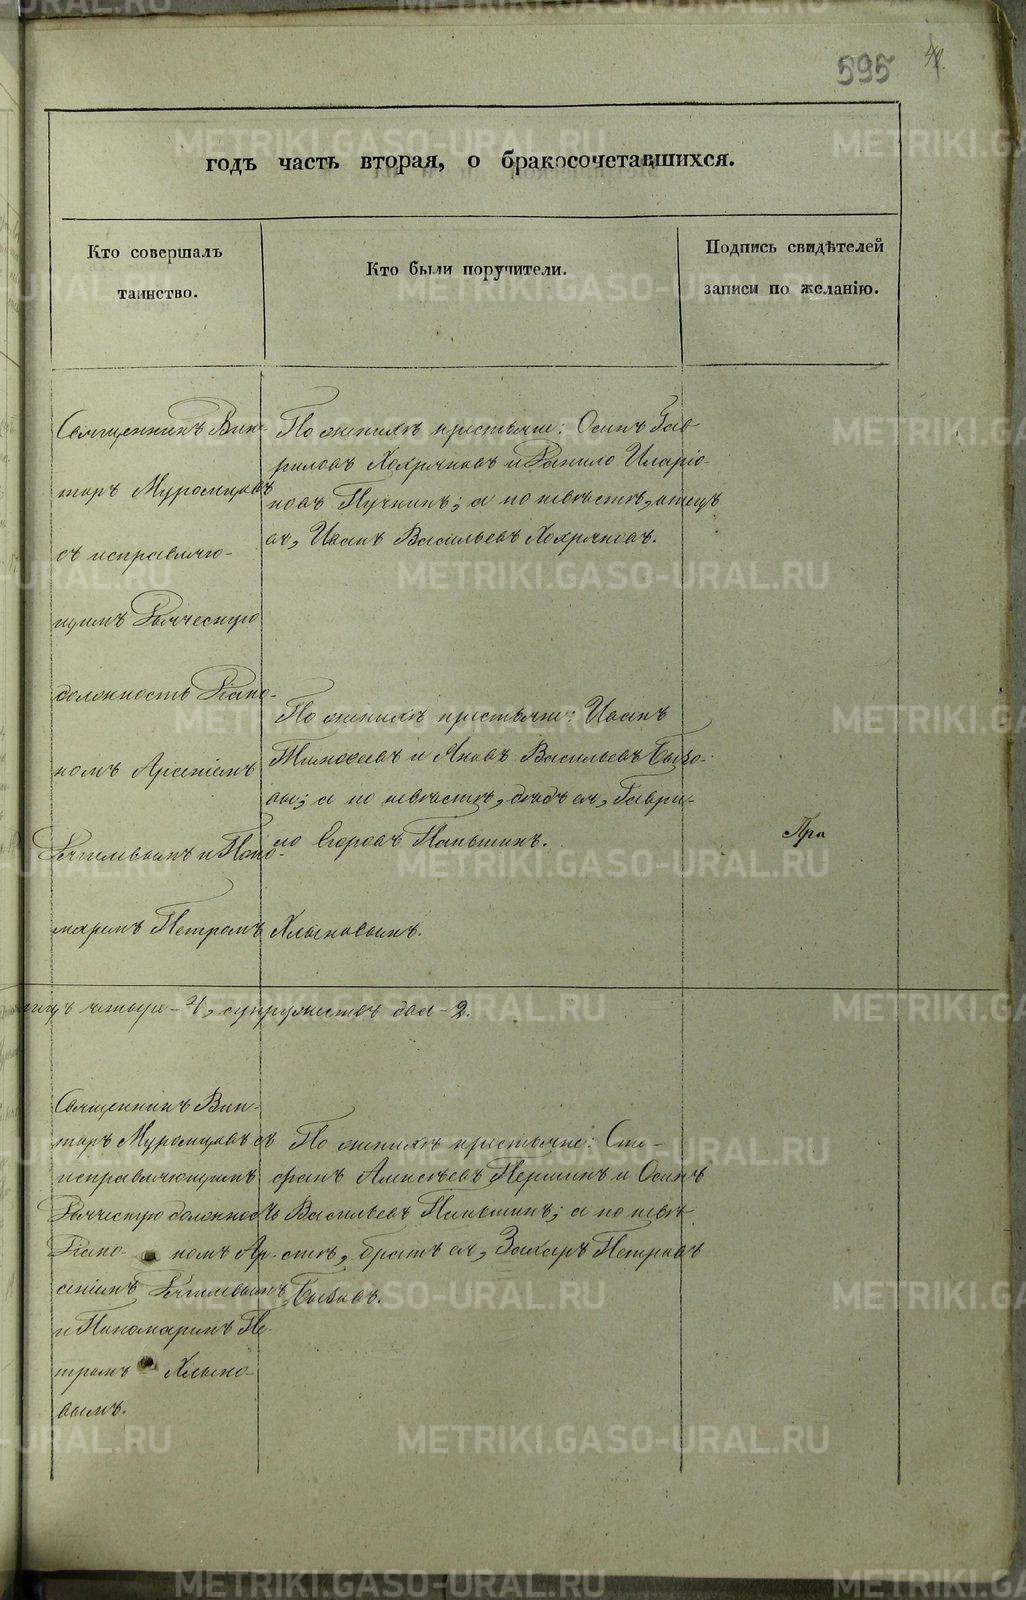 595
годъ часть вторая, о бракосочетавшихся.
Кто совершалъ
таинство.
Кто были поручители.
Подпись свидѣтелей
записи по желанію.
Священникъ Вик-
торъ Муромцовъ
съ исправляю-
щимъ Дьяческую
должность Діако-
номъ Арсеніемъ
и Поно-
маремъ Петромъ Хлыновымъ.
По женихѣ крестьяне: Осипъ Гав-
риловъ Хохряковъ и Данило Иларіо-
новъ Пучкинъ; а по невѣстѣ, отецъ
ея, Иванъ Васильевъ Хохряковъ.
По женихѣ крестьяне: Иванъ
Тимофеевъ и Яковъ Васильевъ Быко-
вы; а по невѣстѣ, дядъ ея, Гаври-
ло Егоровъ Паньшинъ.
При
четыре - 4, супружествъ два - 2.
Священникъ Вик-
торъ Муромцовъ съ
исправляющимъ
Дьяческую должность
Діако- номъ Ар-
сеніемъ
и Пономаремъ Пе-
тромъ Хлыно-
вымъ.
По женихѣ крестьяне: Сте-
фанъ Алексѣевъ Першинъ и Осипъ
Васильевъ Паньшинъ; а по невѣ-
стѣ, братъ ея, Захаръ Петровъ
Быковъ.
METRIKI.GASO-URAL.RU